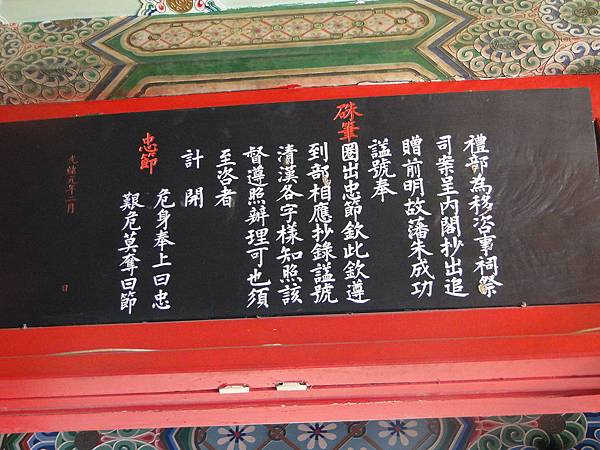 禮部為移咨事祠祭
司案呈內閣抄出追
贈前明故藩朱成功
諡號奉
硃筆圈出忠節欽此欽遵
到部相應抄錄諡號
清漢各字樣知照該
督遵照辦理可也須
至咨者
計開
忠節 危身奉上曰忠
艱危莫奪曰節
光緒元年二月 日